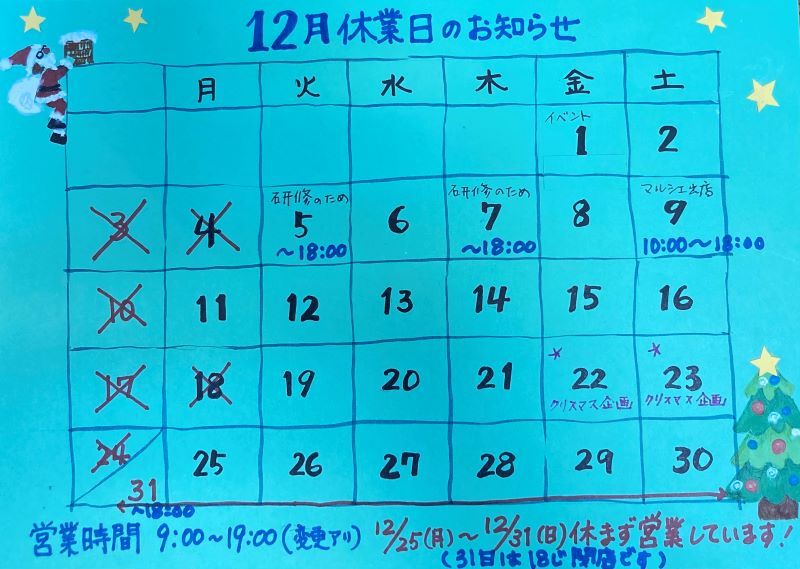 12月休業日のお知らせ
月 火 水 木 金 土
イベント
1 2
研修のため 研修のため マルシェ出店
3 4 5 6 7 8 9
～18:00 ～18:00 10:00～18:00
10 11 12 13 14 15 16
17 18 19 20 21 22 23
クリスマス企画 クリスマス企画
24 25 26 27 28 29 30
31
～18:00
営業時間 9:00～19:00(変更アリ) 12/25(月)～12/31(日)休まず営業しています!
(31日は18じ閉店です)